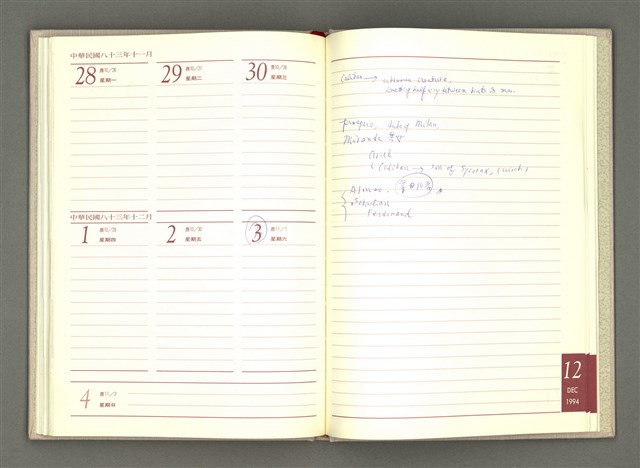 中華民國八十三年十一月
28 農10/26 星期一
29 農10/27 星期二
30 農10/28 星期三
中華民國八十三年十二月
1 農10/29 星期四
2 農10/30 星期五
3 農11/1 星期六
4 農11/2 星期日
Caliban → subhuman creature,
something halfway between brute & man.
Prospero, duke of Milan,
Miranda
Ariel
Caliban → son of Sycorax, (witch)
Alonso
Sebastian
Ferdinand
12
DEC
1994